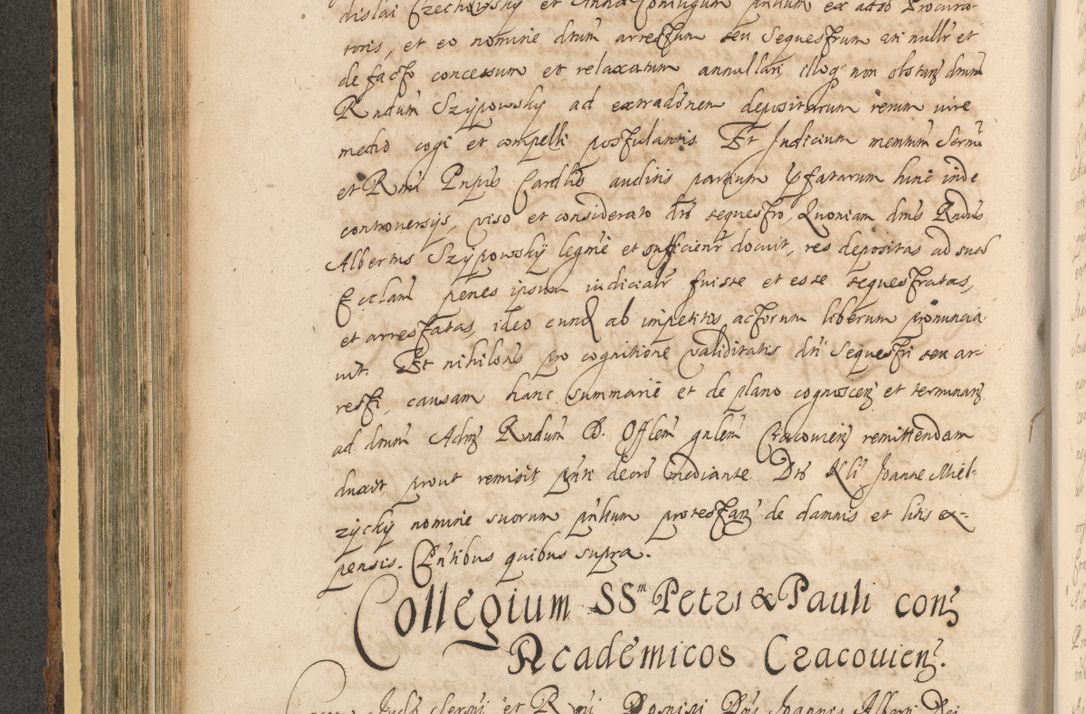 dislai Czechowsky et Anna Coniugum pñtium ex adō Procura-
toris, et eo nomine dnum arrestum seu Sequestrum an nullr et
de facto concessum et relaxatum annullari, illoqʒ non obstanʒ dnum
Rndum Szypowsky ad extradōnem depositarum rerum iure
medio cogi et compelli postulantis. Et Iudicium memtum Sermi
et Rmi Pnpis Cardlis auditis partium pfatarum hinc inde
controversijs, viso et considerato dto sequestro, Quoniam dnus Rndus
Albertus Szypowsky legme et sufficientr docuit, res depositas ad suas
Ecclam penes ipsum iudicialr fuisse et esse sequestratas,
et arrestatas, ideo eundʒ ab impetitōe actorum liberum pronuncia-
uit. Et nihilōns pro cognitione validitatis dti Sequestri seu ar-
resti, causam hanc summarie et de plano cognoscenʒ et terminanʒ
ad dnum Admʒ Rndum D. Offlem gnlem Cracouienʒ remittendam
duxit, prout remisit pnti decro mediante. Dto Nli Joanne Miel-
zycky nomine suorum pnlium protestanʒ de damnis et litis ex-
pensis. Pntibus quibus supra.
Collegium SSm Petri & Pauli conʒ
Academicos Cracouienʒ.
Iudi Sermi et Rmi Domini Dni Joannis Alberti Dei